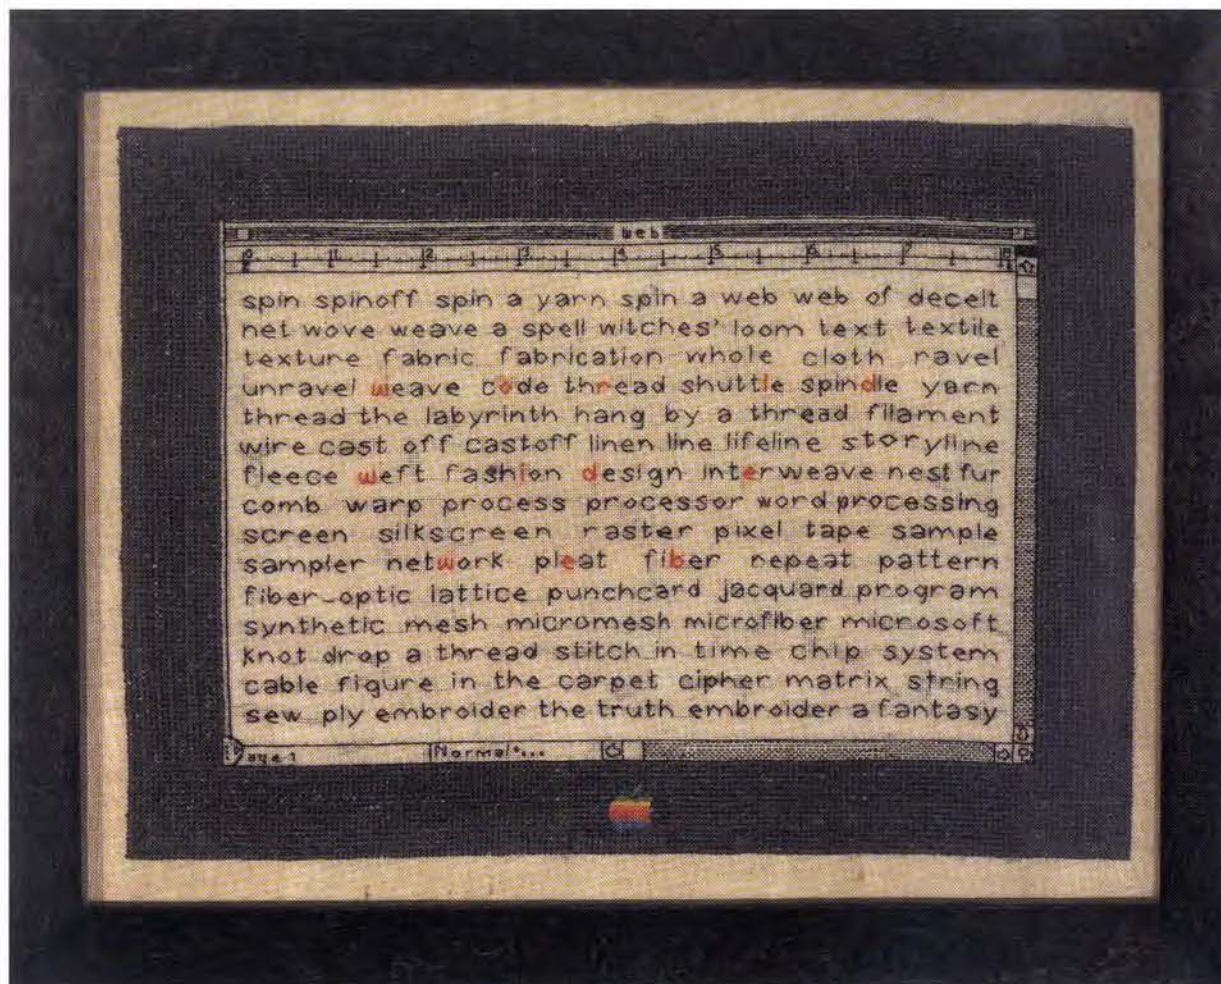 web
0 1 2 3 4 5 6 7
spin spinoff spin a yarn spin a web web of deceit
net wove weave a spell witches' loom text textile
texture fabric fabrication whole cloth ravel
unravel weave code thread shuttle spindle yarn
thread the labyrinth hang by a thread filament
wire cast off castoff linen line lifeline storyline
fleece weft fashion design interweave nest fur
comb warp process processor word processing
screen silkscreen raster pixel tape sample
sampler network pleat fiber repeat pattern
fiber-optic lattice punchcard jacquard program
synthetic mesh micromesh microfiber microsoft
knot drop a thread stitch in time chip system
cable figure in the carpet cipher matrix string
sew ply embroider the truth embroider a fantasy
Page 1 Normal+...